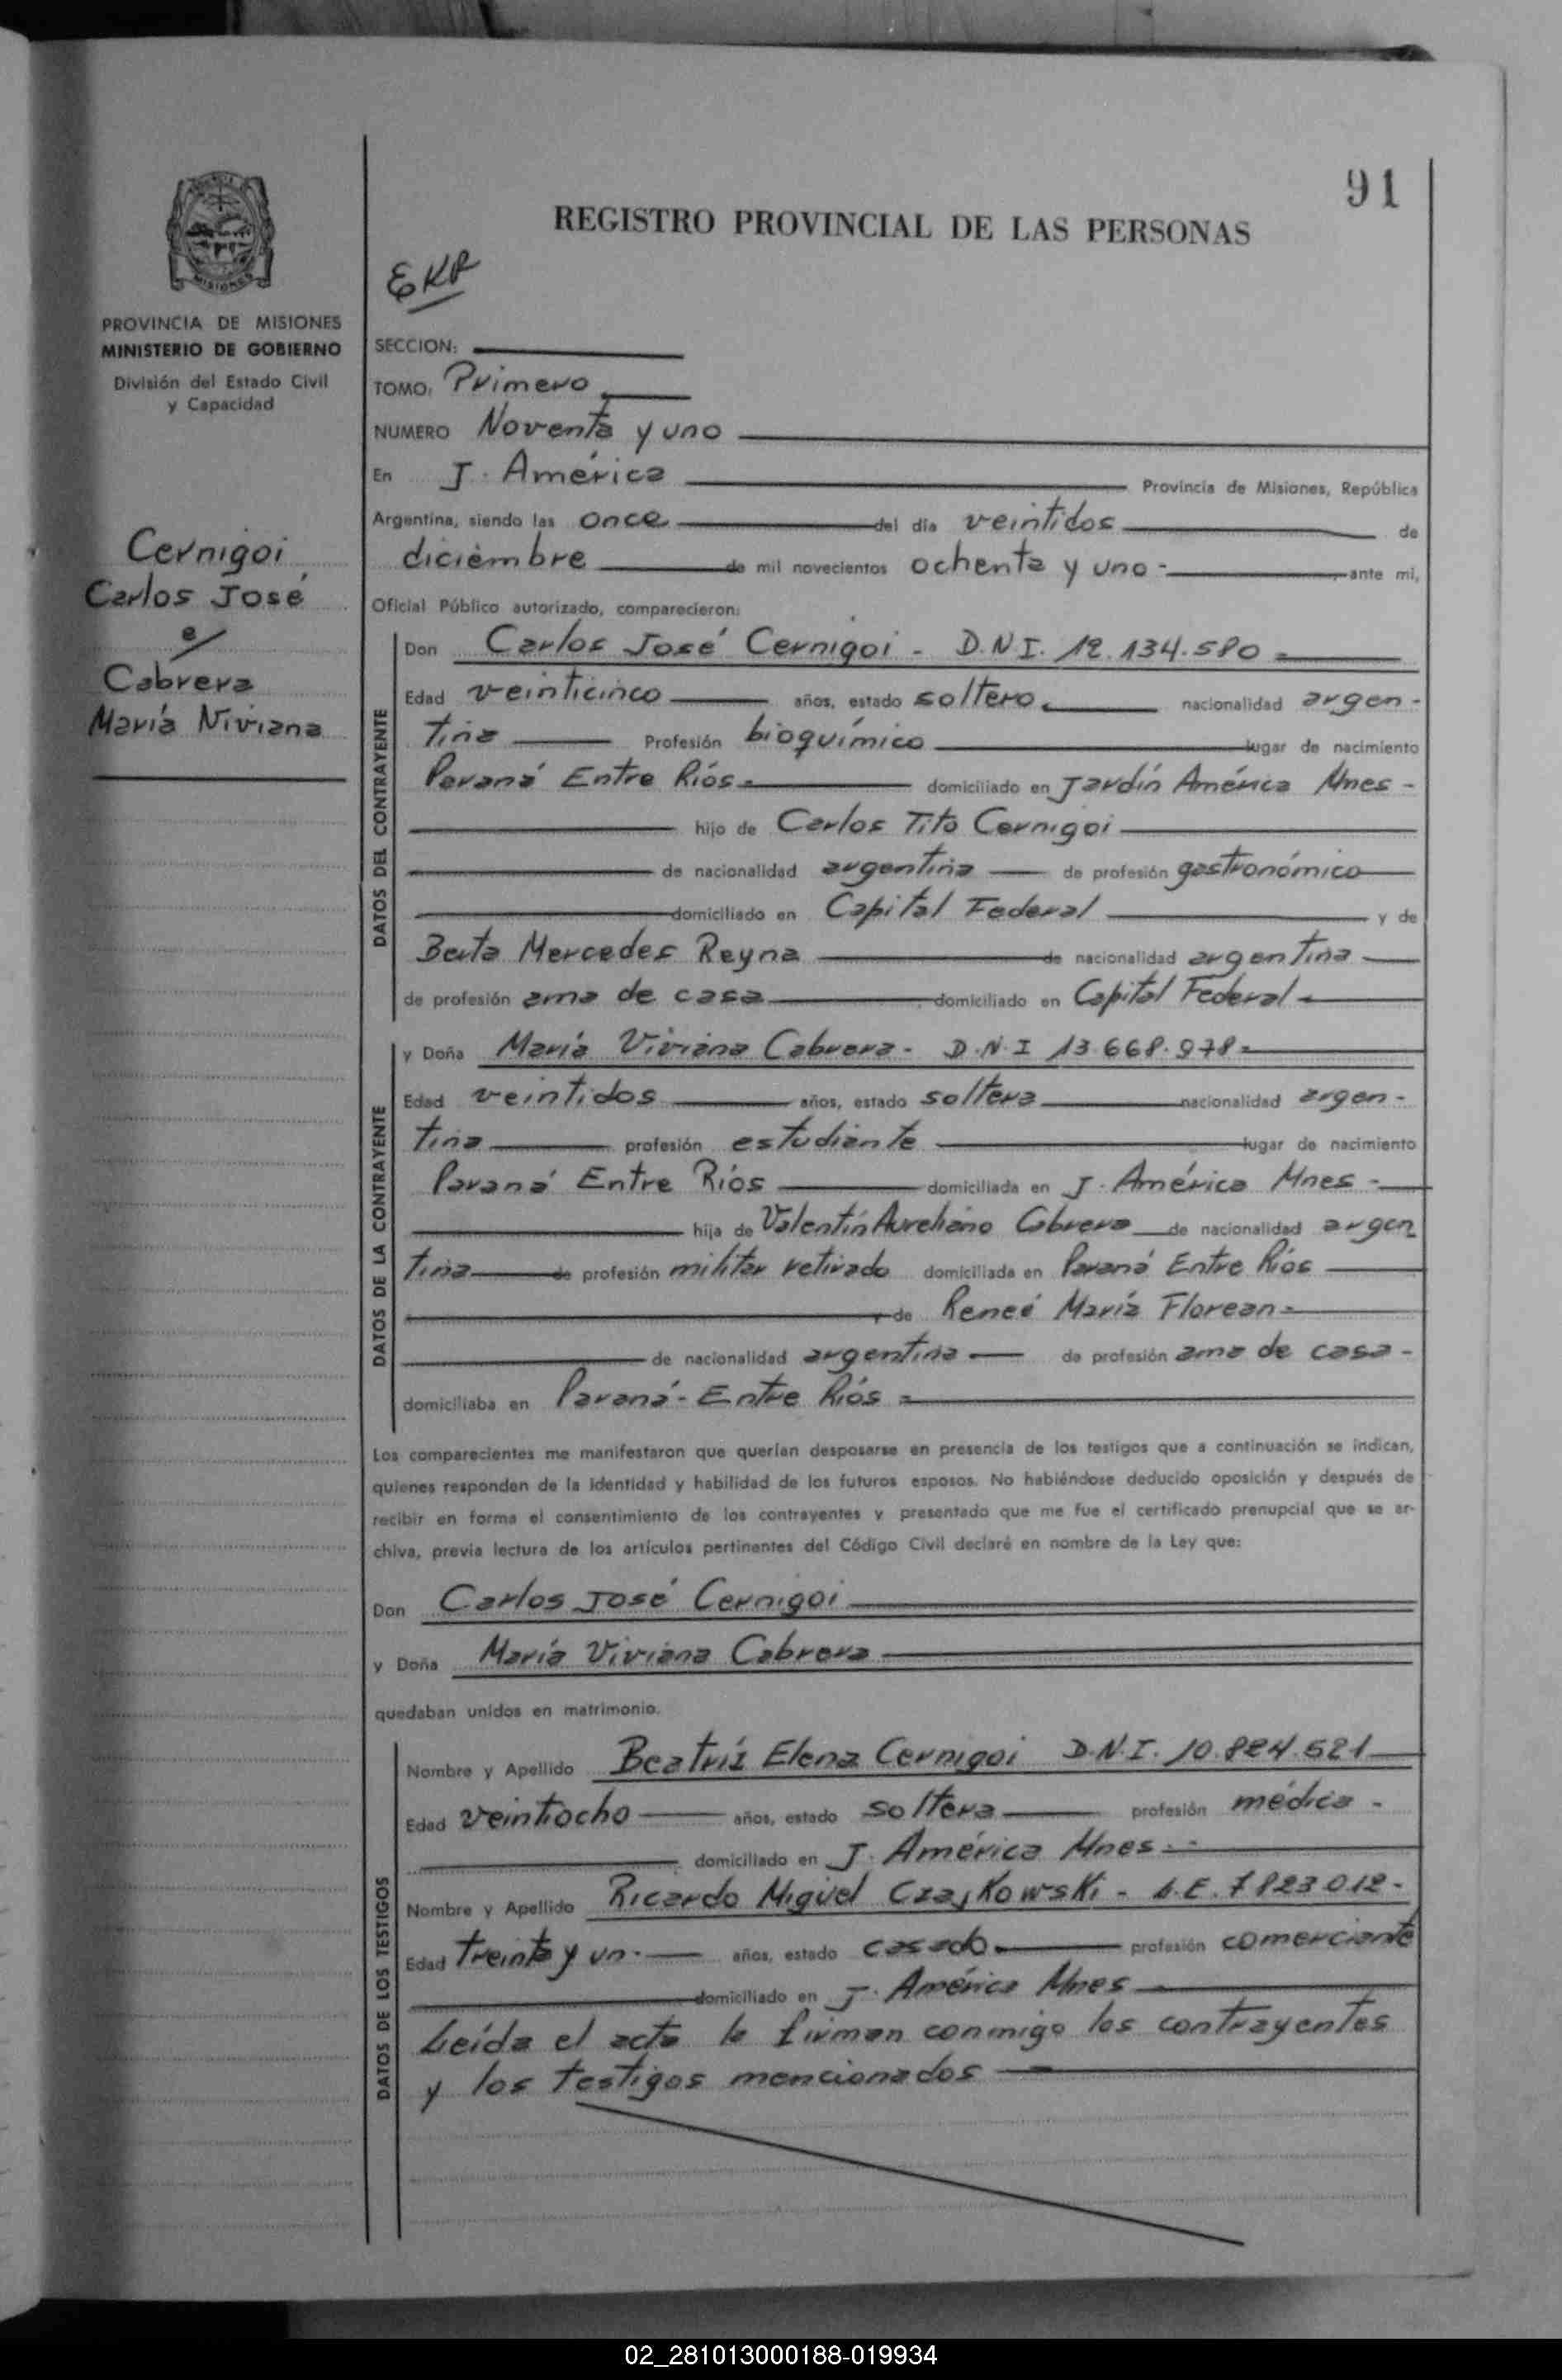 91
REGISTRO PROVINCIAL DE LAS PERSONAS
PROVINCIA DE MISIONES
MINISTERIO DE GOBIERNO
División del Estado Civil
y Capacidad
Cernigoi
Carlos José
Cabrera
María Niviana
SECCION:
TOMO: Primero
NUMERO Noventa y uno
En J. América Provincia de Misiones, República
Argentina, siendo las once del día veintidos de
diciembre de mil novecientos ochenta y uno - ante mi,
Oficial Público autorizado, comparecieron:
DATOS DEL CONTRAYENTE
Don Carlos José Cernigoi - D.N.I. 12.134.580 =
Edad veinticinco años, estado soltero nacionalidad argen-
tina Profesión bioquímico lugar de nacimiento
Paraná Entre Ríos domiciliado en Jardín América Mnes -
hijo de Carlos Tito Cernigoi
de nacionalidad argentina de profesión gastronómico
domiciliado en Capital Federal y de
Berta Mercedes Reyna de nacionalidad argentina
de profesión ama de casa domiciliado en Capital Federal
DATOS DE LA CONTRAYENTE
y Doña María Viviana Cabrera - D.N.I 13.668.978=
Edad veintidos años, estado soltera nacionalidad argen-
tina profesión estudiante lugar de nacimiento
Paraná Entre Ríos domiciliada en J. América Mnes -
hija de Valentín Aureliano Cabrera de nacionalidad argen
tina de profesión militar retirado domiciliada en Paraná Entre Ríos
y de Reneé María Florean=
de nacionalidad argentina de profesión ama de casa -
domiciliaba en Paraná - Entre Ríos =
Los comparecientes me manifestaron que querían desposarse en presencia de los testigos que a continuación se indican,
quienes responden de la identidad y habilidad de los futuros esposos. No habiéndose deducido oposición y después de
recibir en forma el consentimiento de los contrayentes y presentado que me fue el certificado prenupcial que se ar-
chiva, previa lectura de los artículos pertinentes del Código Civil declaré en nombre de la Ley que:
Don Carlos José Cernigoi
y Doña María Viviana Cabrera
quedaban unidos en matrimonio.
DATOS DE LOS TESTIGOS
Nombre y Apellido Beatríz Elena Cernigoi D.N.I. 10.824.521
Edad veintiocho años, estado soltera profesión médica -
domiciliado en J. América Mnes.-
Nombre y Apellido Ricardo Miguel Czajkowski - L.E. 7823012-
Edad treinta y un.- años, estado casado profesión comerciante
domiciliado en J. América Mnes
Leída el acta la firman conmigo los contrayentes
y los testigos mencionados
02_281013000188-019934